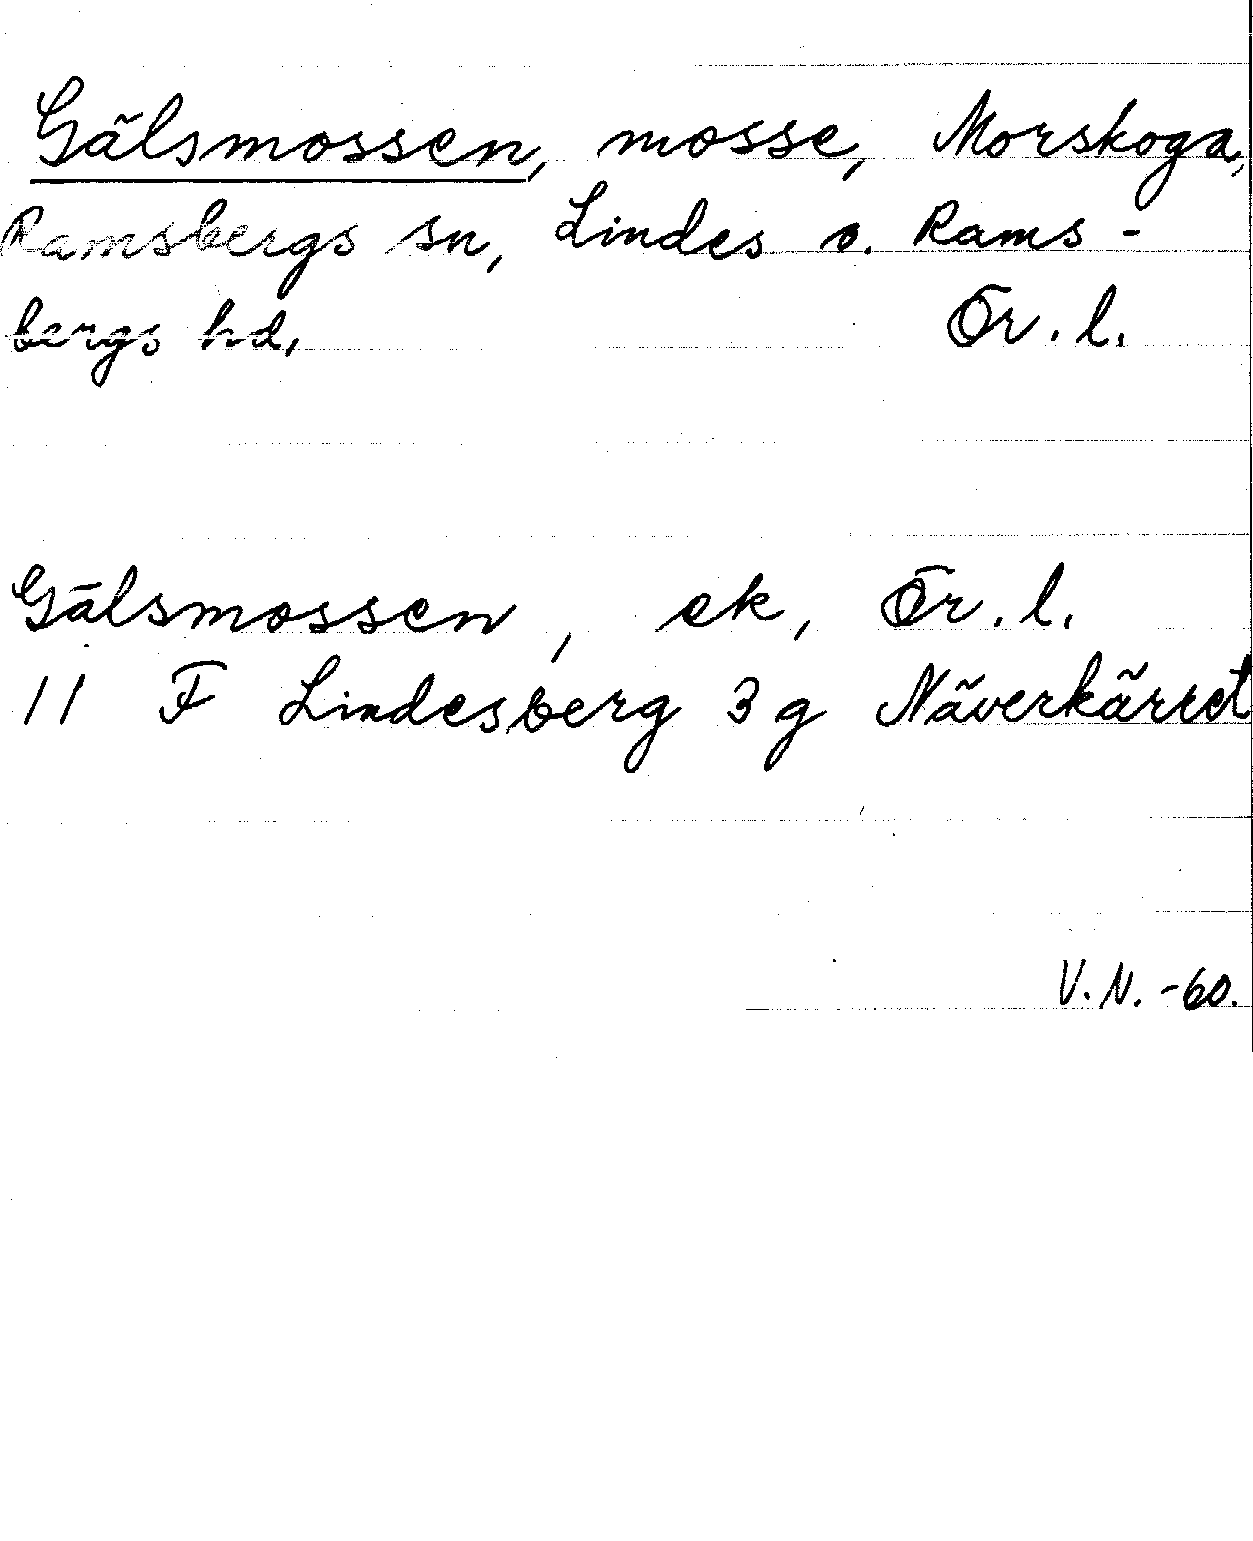 Gälsmossen, mosse, Morskoga,
Ramsbergs sn, Lindes o. Rams-
bergs hd, Ör. l.
Gälsmossen, ek, Ör. l.
11 F Lindesberg 3 g Näverkärret
V.N. -60.